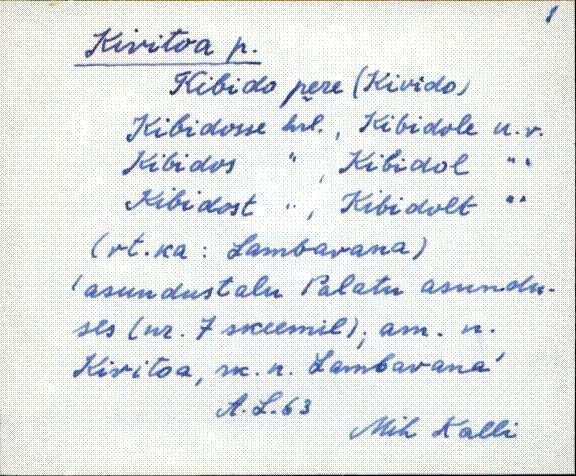 1
Kivitoa p.
Kibido pere (Kivido)
Kibidosse hrl., Kibidole n.v.
Kibidos " , Kibidol " "
Kibidost " , Kibidolt " "
(vt. ka: Lambavana)
'asundustalu Palatu asundu-
ses (nr. 7 skeemil); am. n.
Kivitoa, rk. n. Lambavana'
A.L. 63
Mih Kalli